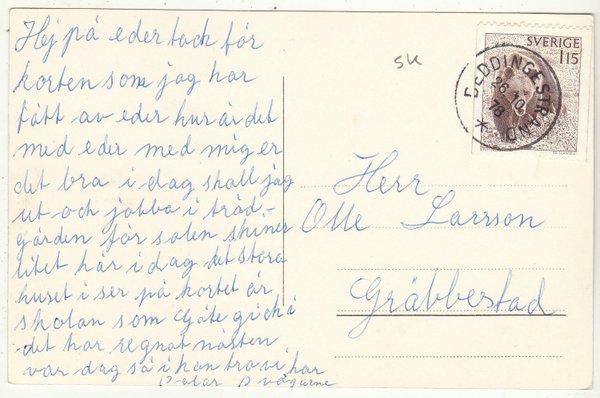 Hej på eder tack för
korten som jag har
fått av eder hur är det
med eder med mig er
det bra i dag skall jag
ut och jobba i träd-
gården för solen shiner
litet här i dag det stora
huset i ser på kortet är
skolan som Göte gick i
det har regnat nästen
var dag så i kan tro vi har
vägarne
SK
SVERIGE
115
BEDDINGESTRAND
26 10
78
Herr
Olle Larrson
Gräbbestad